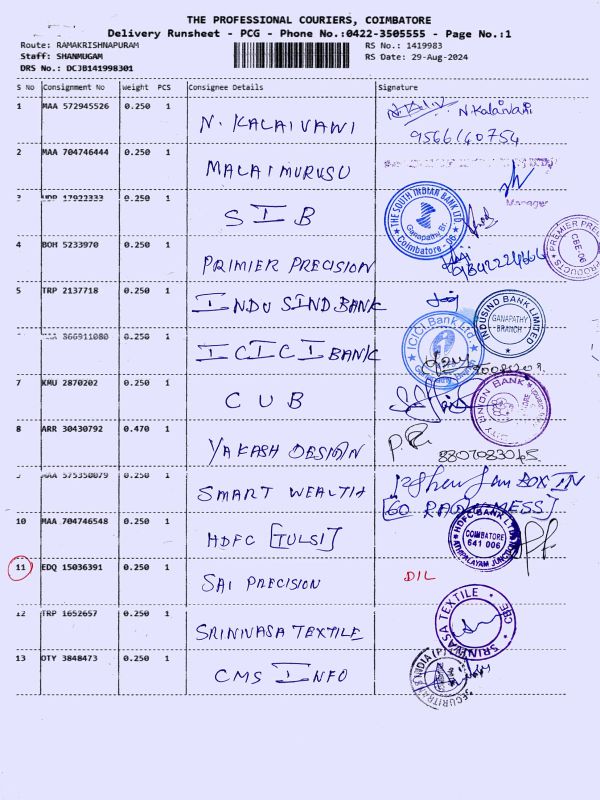 THE PROFESSIONAL COURIERS, COIMBATORE
Delivery Runsheet - PCG - Phone No.:0422-3505555 - Page No.:1
Route: RAMAKRISHNAPURAM RS No.: 1419983
Staff: SHANMUGAM RS Date: 29-Aug-2024
DRS No.: DCJB141998301
S No Consignment No Weight PCS Consignee Details Signature
1 MAA 572945526 0.250 1 N. KALAIVANI N.Kalaivani
9566140754
2 MAA 704746444 0.250 1 MALAIMURUSU
Manager
3 17922333 0.250 1 SIB THE SOUTH INDIAN BANK LTD Ganapathy Br. Coimbatore - 06
4 BOH 5233970 0.250 1 PRIMIER PRECISION PREMIER PRECISION PRODUCTS CBE-06
5 TRP 2137718 0.250 1 INDUSIND BANK INDUSIND BANK LIMITED GANAPATHY BRANCH
866911080 0.250 1 ICICI BANK ICICI Bank Ltd.
7 KMU 2870202 0.250 1 CUB CITY UNION BANK
8 ARR 30430792 0.470 1 YAKASH DESIGN
8807083045
MAA 575350079 0.250 1 SMART WEALTH BOX IN
10 MAA 704746548 0.250 1 HDFC [TULSI] HDFC BANK LTD COIMBATORE 641 006
11 EDQ 15036391 0.250 1 SAI PRECISION DIL
12 TRP 1652657 0.250 1 SRINIVASA TEXTILE SRINIVASA TEXTILE CBE
13 OTY 3848473 0.250 1 CMS INFO